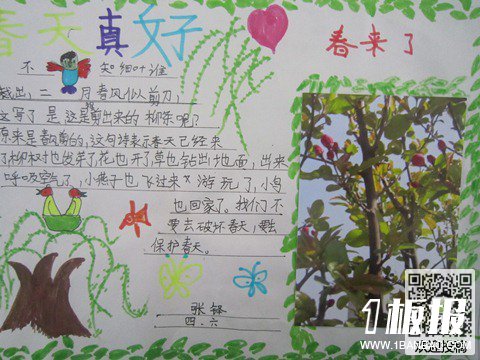 春天真好
春来了
不 知细叶谁
裁出,二 月春风似剪刀,
写了是 这是剪出来的柳条呢?
原来是春风剪的,这句诗表示春天已经来
了柳树也发芽了花也开了草也钻出地面,出来
呼吸空气了,小燕子也飞过来游玩了,小鸟
也回家了,我们不
要去破坏春天,要去
保护春天。
张铎
四、六
1板报
WWW.1BANBAO.COM